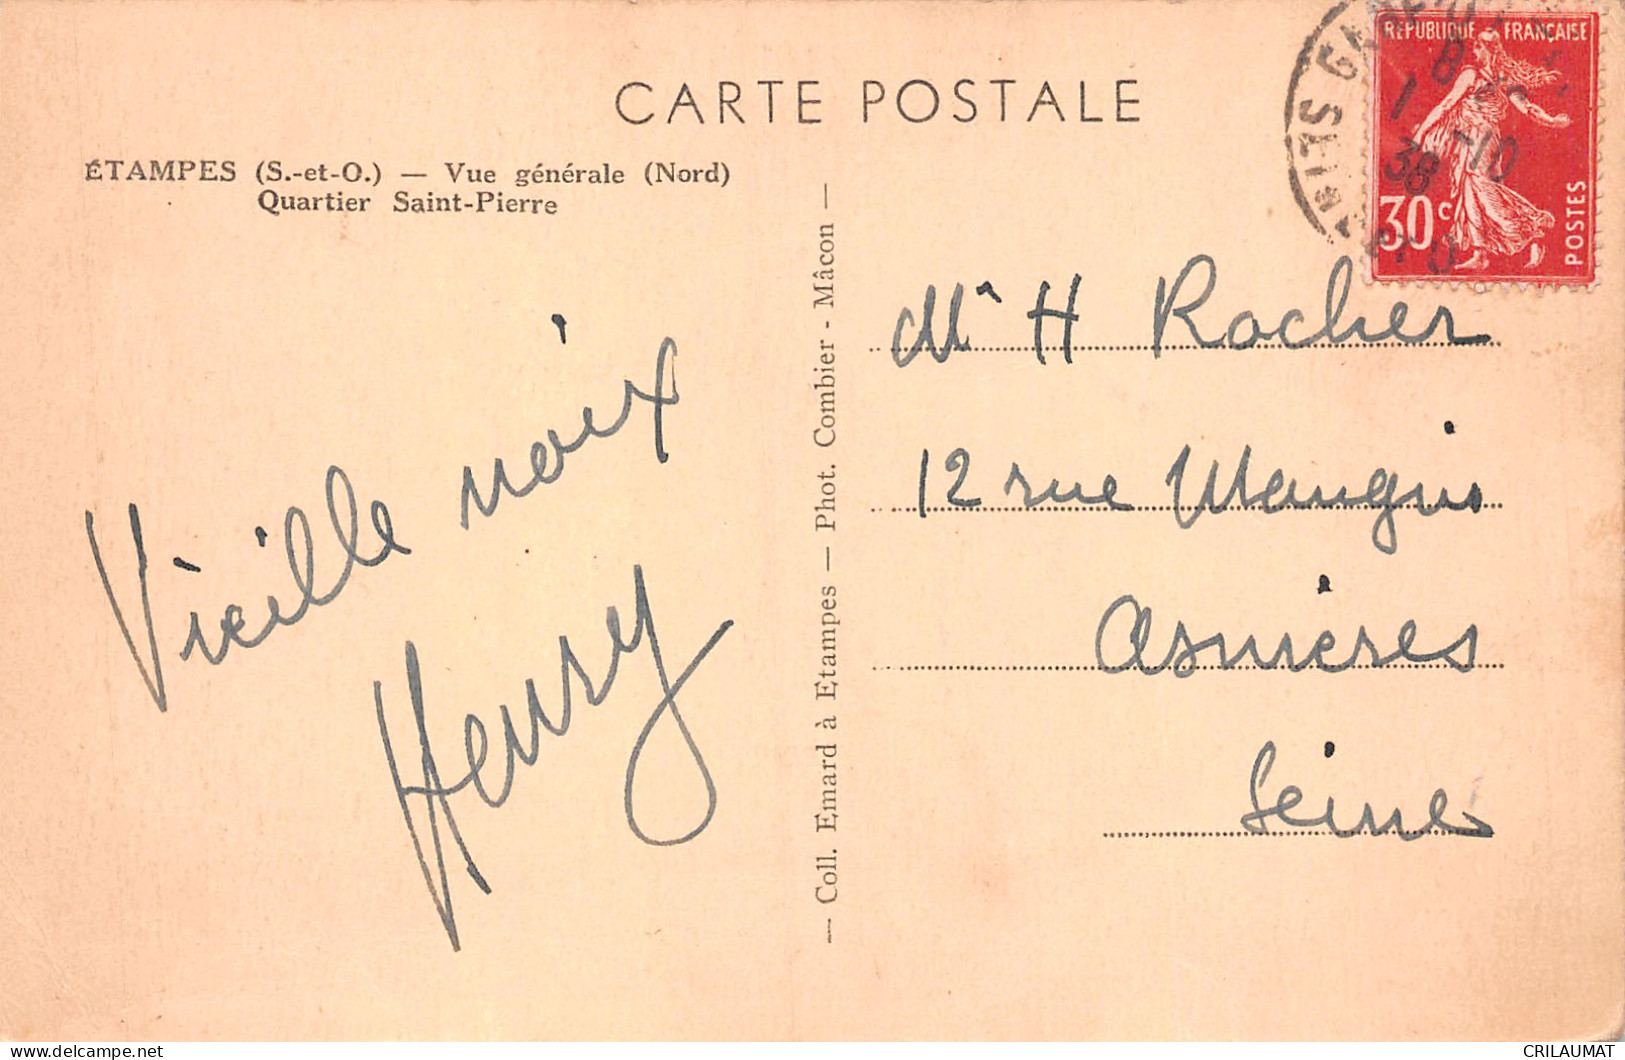 CARTE POSTALE
ÉTAMPES (S.-et-O.) — Vue générale (Nord)
Quartier Saint-Pierre
RÉPUBLIQUE FRANÇAISE
30c
POSTES
PARIS GARE D
8
1 -10
38
— Coll. Emard à Etampes — Phot. Combier - Mâcon —
Vieille noix
Henry
Mr H Rocher
12 rue Maugui
Asnieres
Seine
delcampe.net
CRILAUMAT